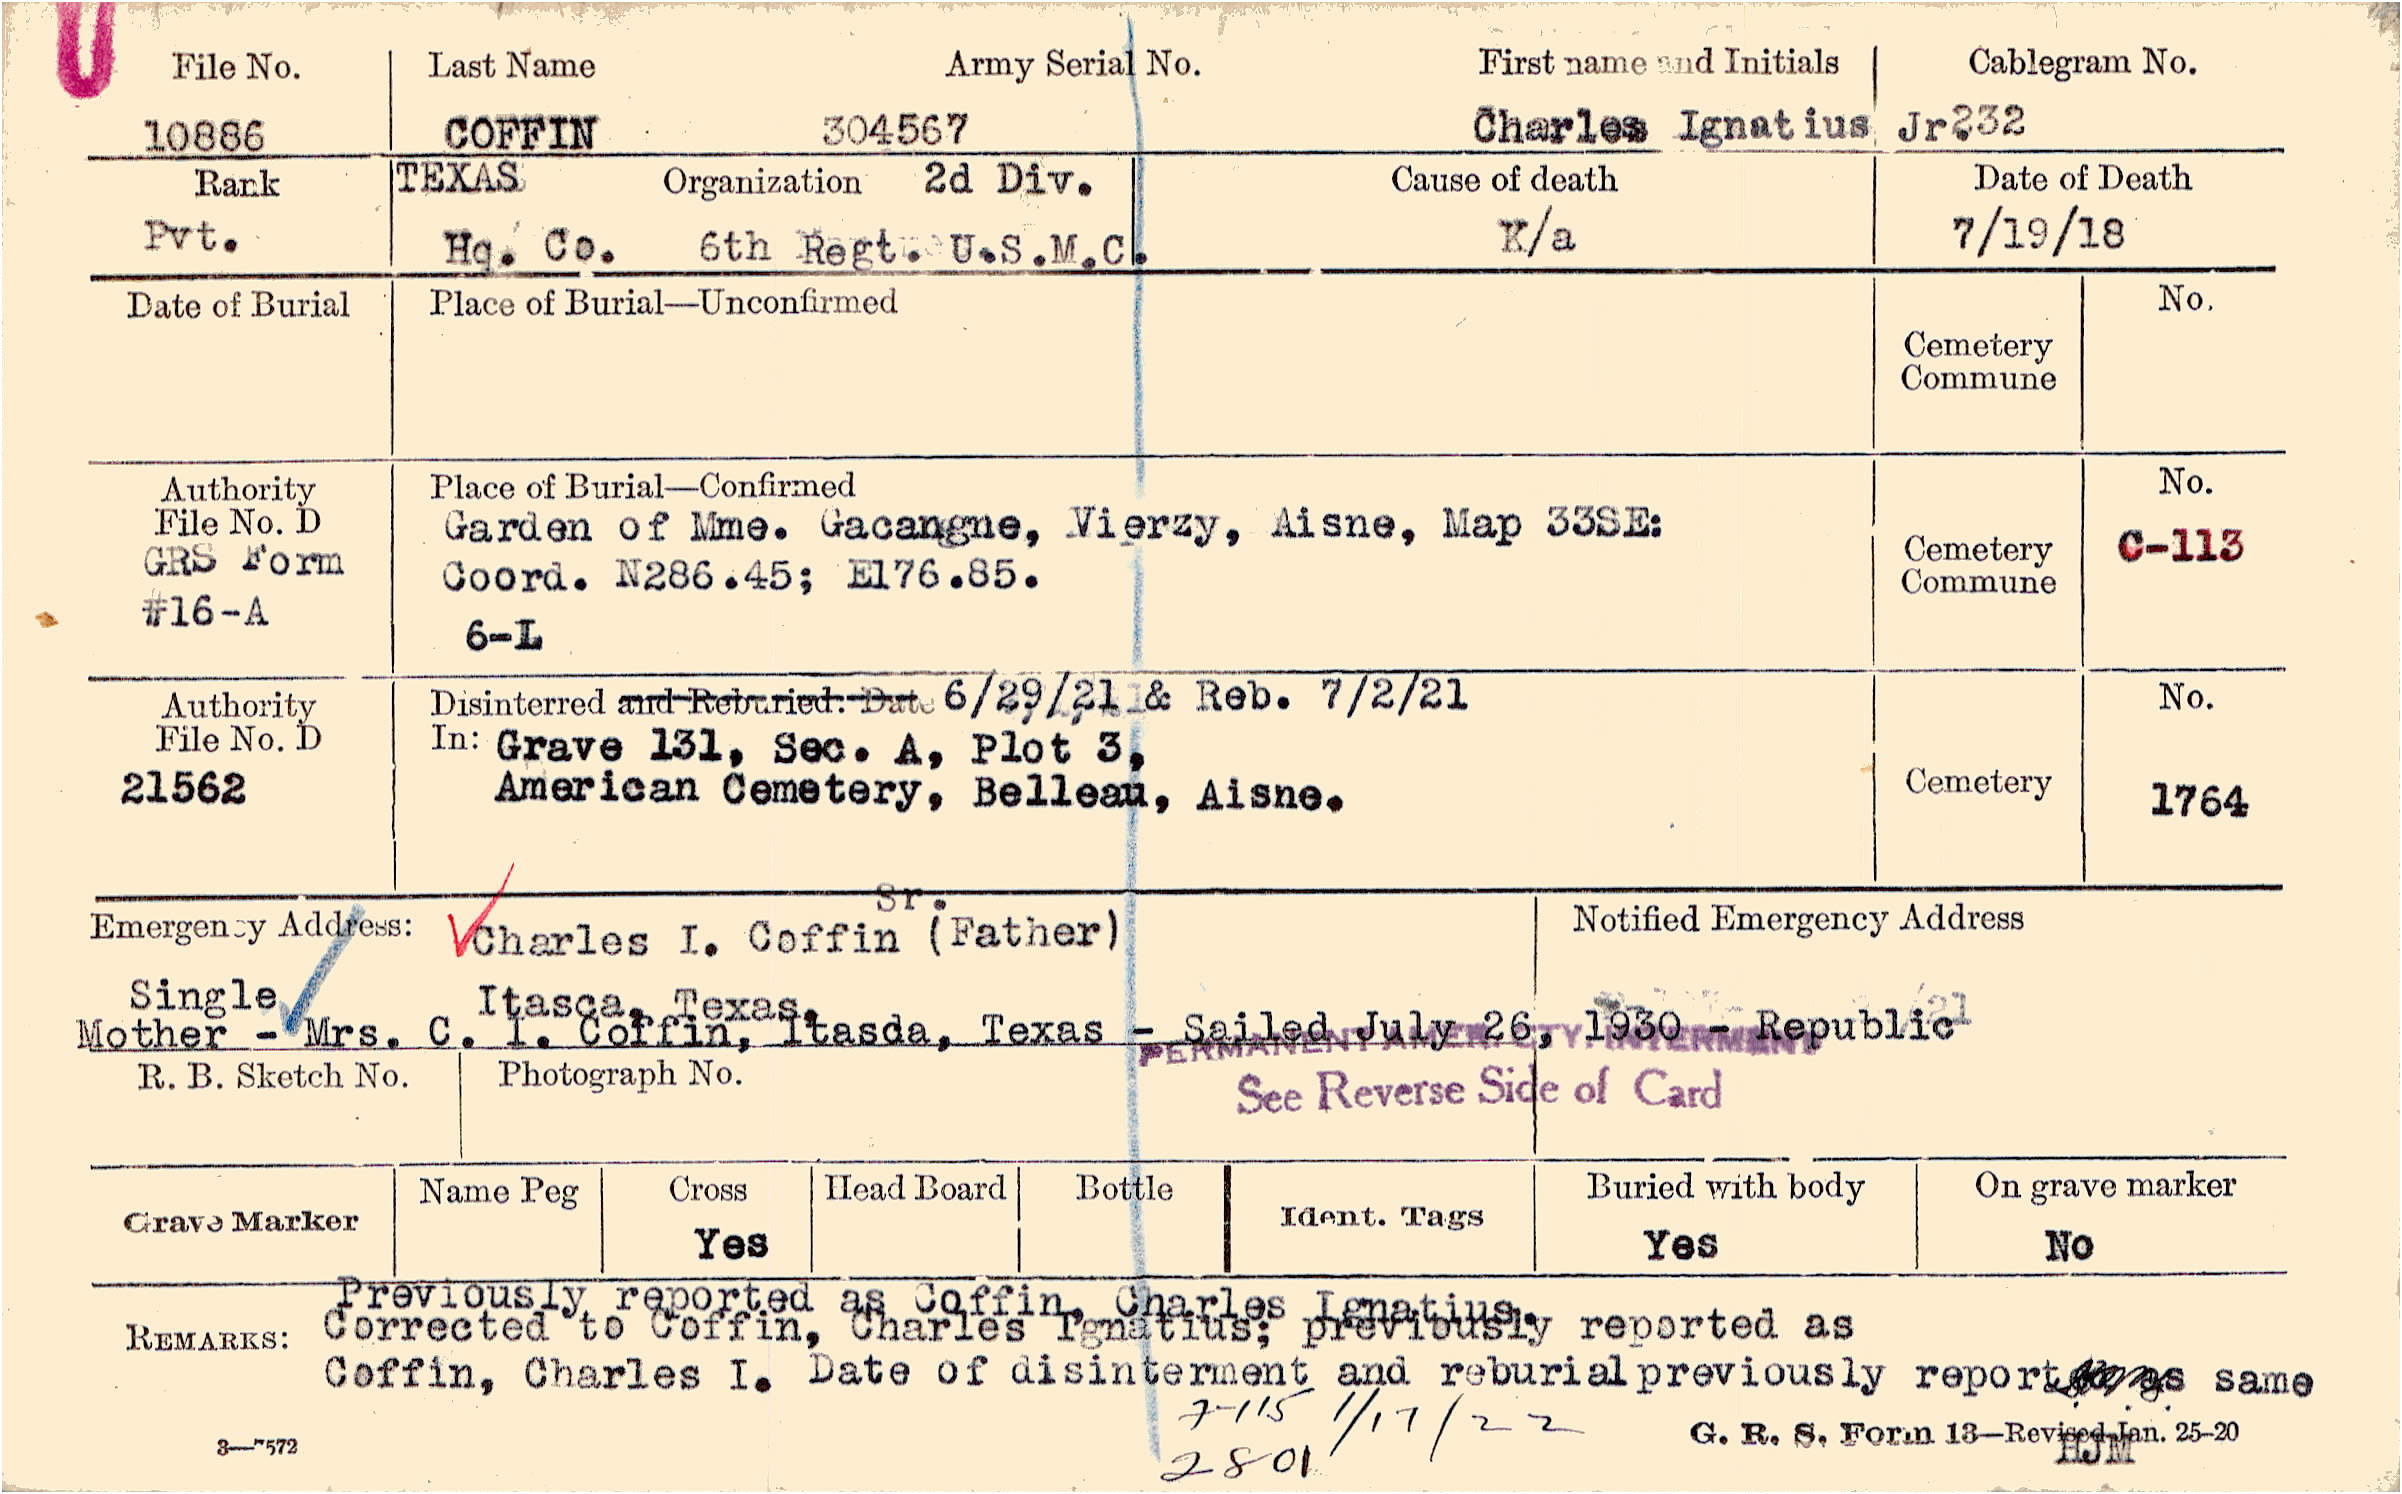 File No. Last Name Army Serial No. First name and Initials Cablegram No.
10886 COFFIN 304567 Charles Ignatius Jr. 232
Rank TEXAS Organization 2d Div. Cause of death Date of Death
Pvt. Hq. Co. 6th Regt. U.S.M.C. K/a 7/19/18
Date of Burial Place of Burial—Unconfirmed No.
Cemetery
Commune
Authority Place of Burial—Confirmed No.
File No. D Garden of Mme. Gacangne, Vierzy, Aisne, Map 33SE: C-113
GRS Form Coord. N286.45; E176.85. Cemetery
#16-A Commune
6-L
Authority Disinterred and Reburied: Date 6/29/21 & Reb. 7/2/21 No.
File No. D In: Grave 131, Sec. A, Plot 3,
21562 American Cemetery, Belleau, Aisne. Cemetery 1764
Sr.
Emergency Address: Charles I. Coffin (Father) Notified Emergency Address
Single Itasca, Texas.
Mother - Mrs. C. I. Coffin, Itasda, Texas - Sailed July 26, 1930 - Republic
PERMANENT INTERMENT
R. B. Sketch No. Photograph No.
See Reverse Side of Card
Grave Marker Name Peg Cross Head Board Bottle Ident. Tags Buried with body On grave marker
Yes Yes No
Previously reported as Coffin, Charles Ignatius.
REMARKS: Corrected to Coffin, Charles Ignatius; previously reported as
Coffin, Charles I. Date of disinterment and reburial previously reported as same
7-115 1/17/22
3—7572 2801 G. R. S. Form 13—Revised Jan. 25-20
HJM